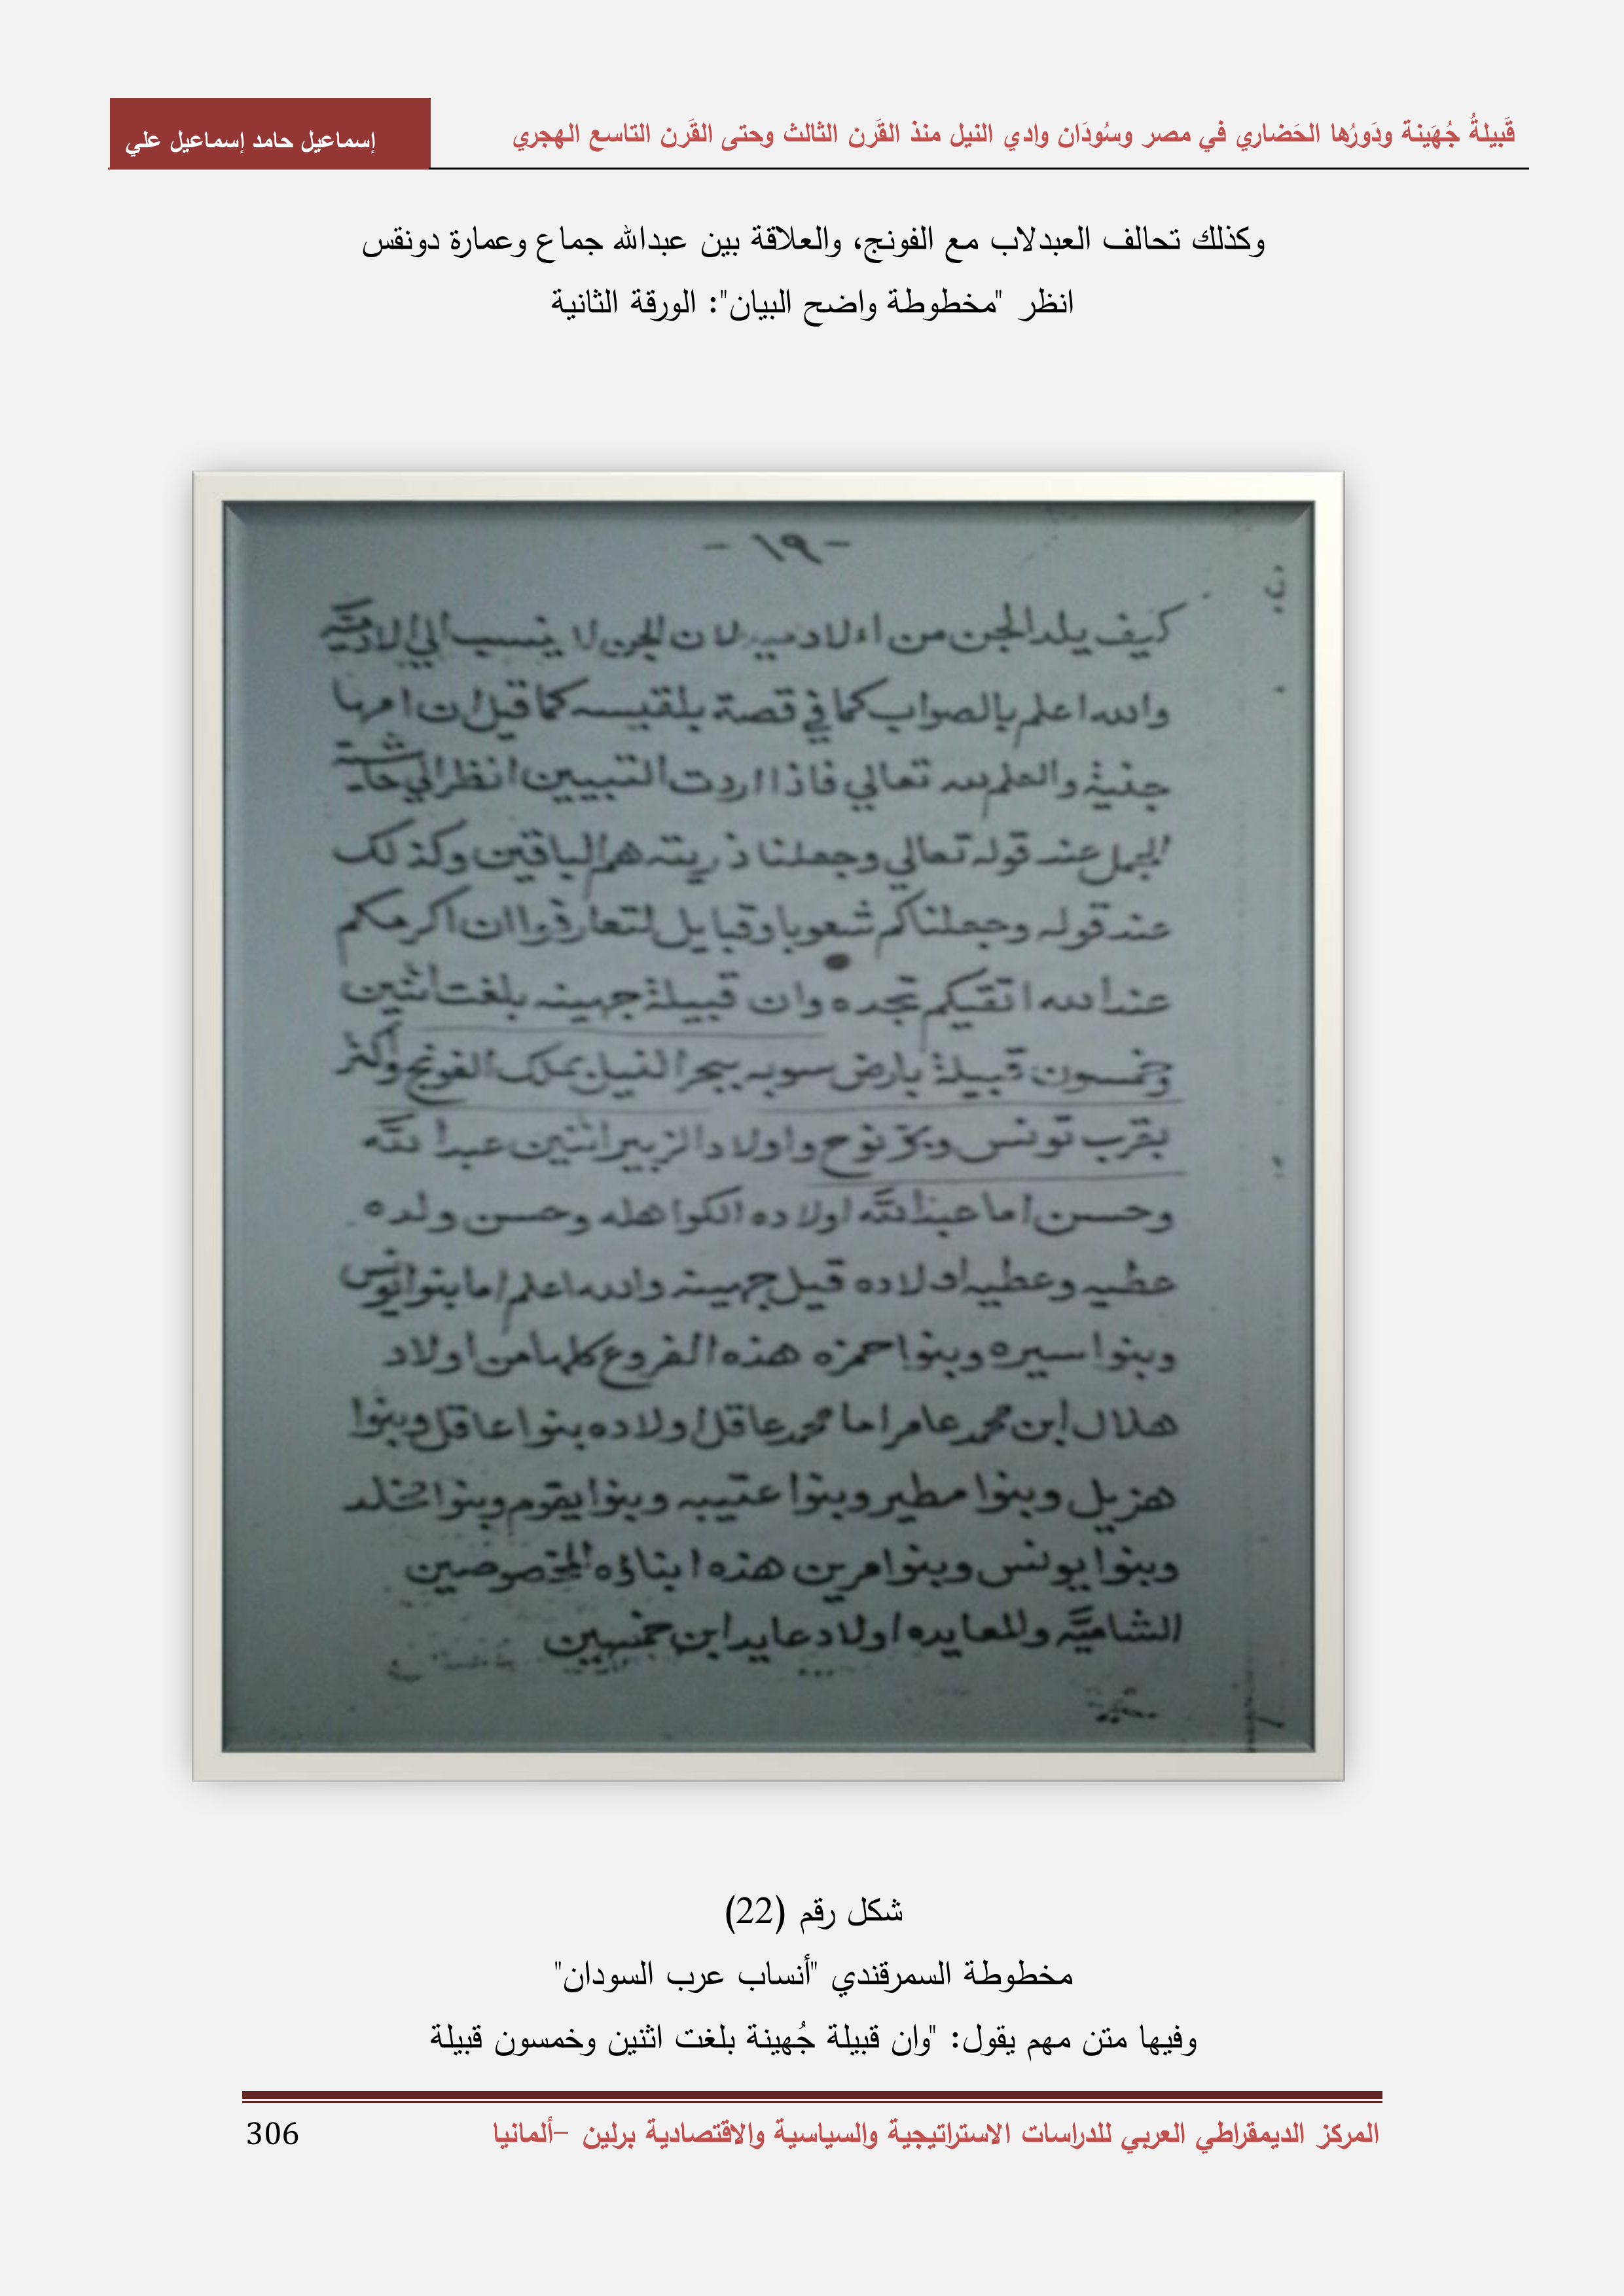 قَبيلةُ جُهَينة ودَورُها الحَضاري في مصر وسُودَان وادي النيل منذ القَرن الثالث وحتى القَرن التاسع الهجري
إسماعيل حامد إسماعيل علي
وكذلك تحالف العبدلاب مع الفونج، والعلاقة بين عبدالله جماع وعمارة دونقس
انظر "مخطوطة واضح البيان": الورقة الثانية
- ١٩ -
كيف يلد الجن من لان الجن لا ينسب الي الادميه
والله اعلم بالصواب كما في قصة بلقيسه كما قيل ان امها
جنية والعلم لله تعالي فاذا اردت التبيين انظر الي حاشية
الجمل عند قوله تعالي وجعلنا ذريته هم الباقين وكذلك
عند قوله وجعلناكم شعوبا وقبايل لتعارفوا ان اكرمكم
عند الله اتقيكم تجده وان قبيلة جهينه بلغت اثنين
وخمسون قبيلة بارض سوبه ببحر النيل بملك الفونج واكثر
بقرب تونس وبر نوح واولاد الزبير اثنين عبد الله
وحسن اما عبد الله اولاده الكواهله وحسن ولده
عطيه وعطيه اولاده قيل جهينه والله اعلم اما بنوا يونس
وبنوا سيره وبنوا حمزه هذه الفروع كلها من اولاد
هلال ابن محمد عامر اما محمد عاقل اولاده بنوا عاقل وبنوا
هزيل وبنوا مطير وبنوا عتيبه وبنوا يقوم وبنوا
وبنوا يونس وبنوا مرين هذه ابناؤه المخصوصين
الشاميه وللمعايده اولاد عايد ابن
شكل رقم (22)
مخطوطة السمرقندي "أنساب عرب السودان"
وفيها متن مهم يقول: "وان قبيلة جُهينة بلغت اثنين وخمسون قبيلة
المركز الديمقراطي العربي للدراسات الاستراتيجية والسياسية والاقتصادية برلين –ألمانيا
306